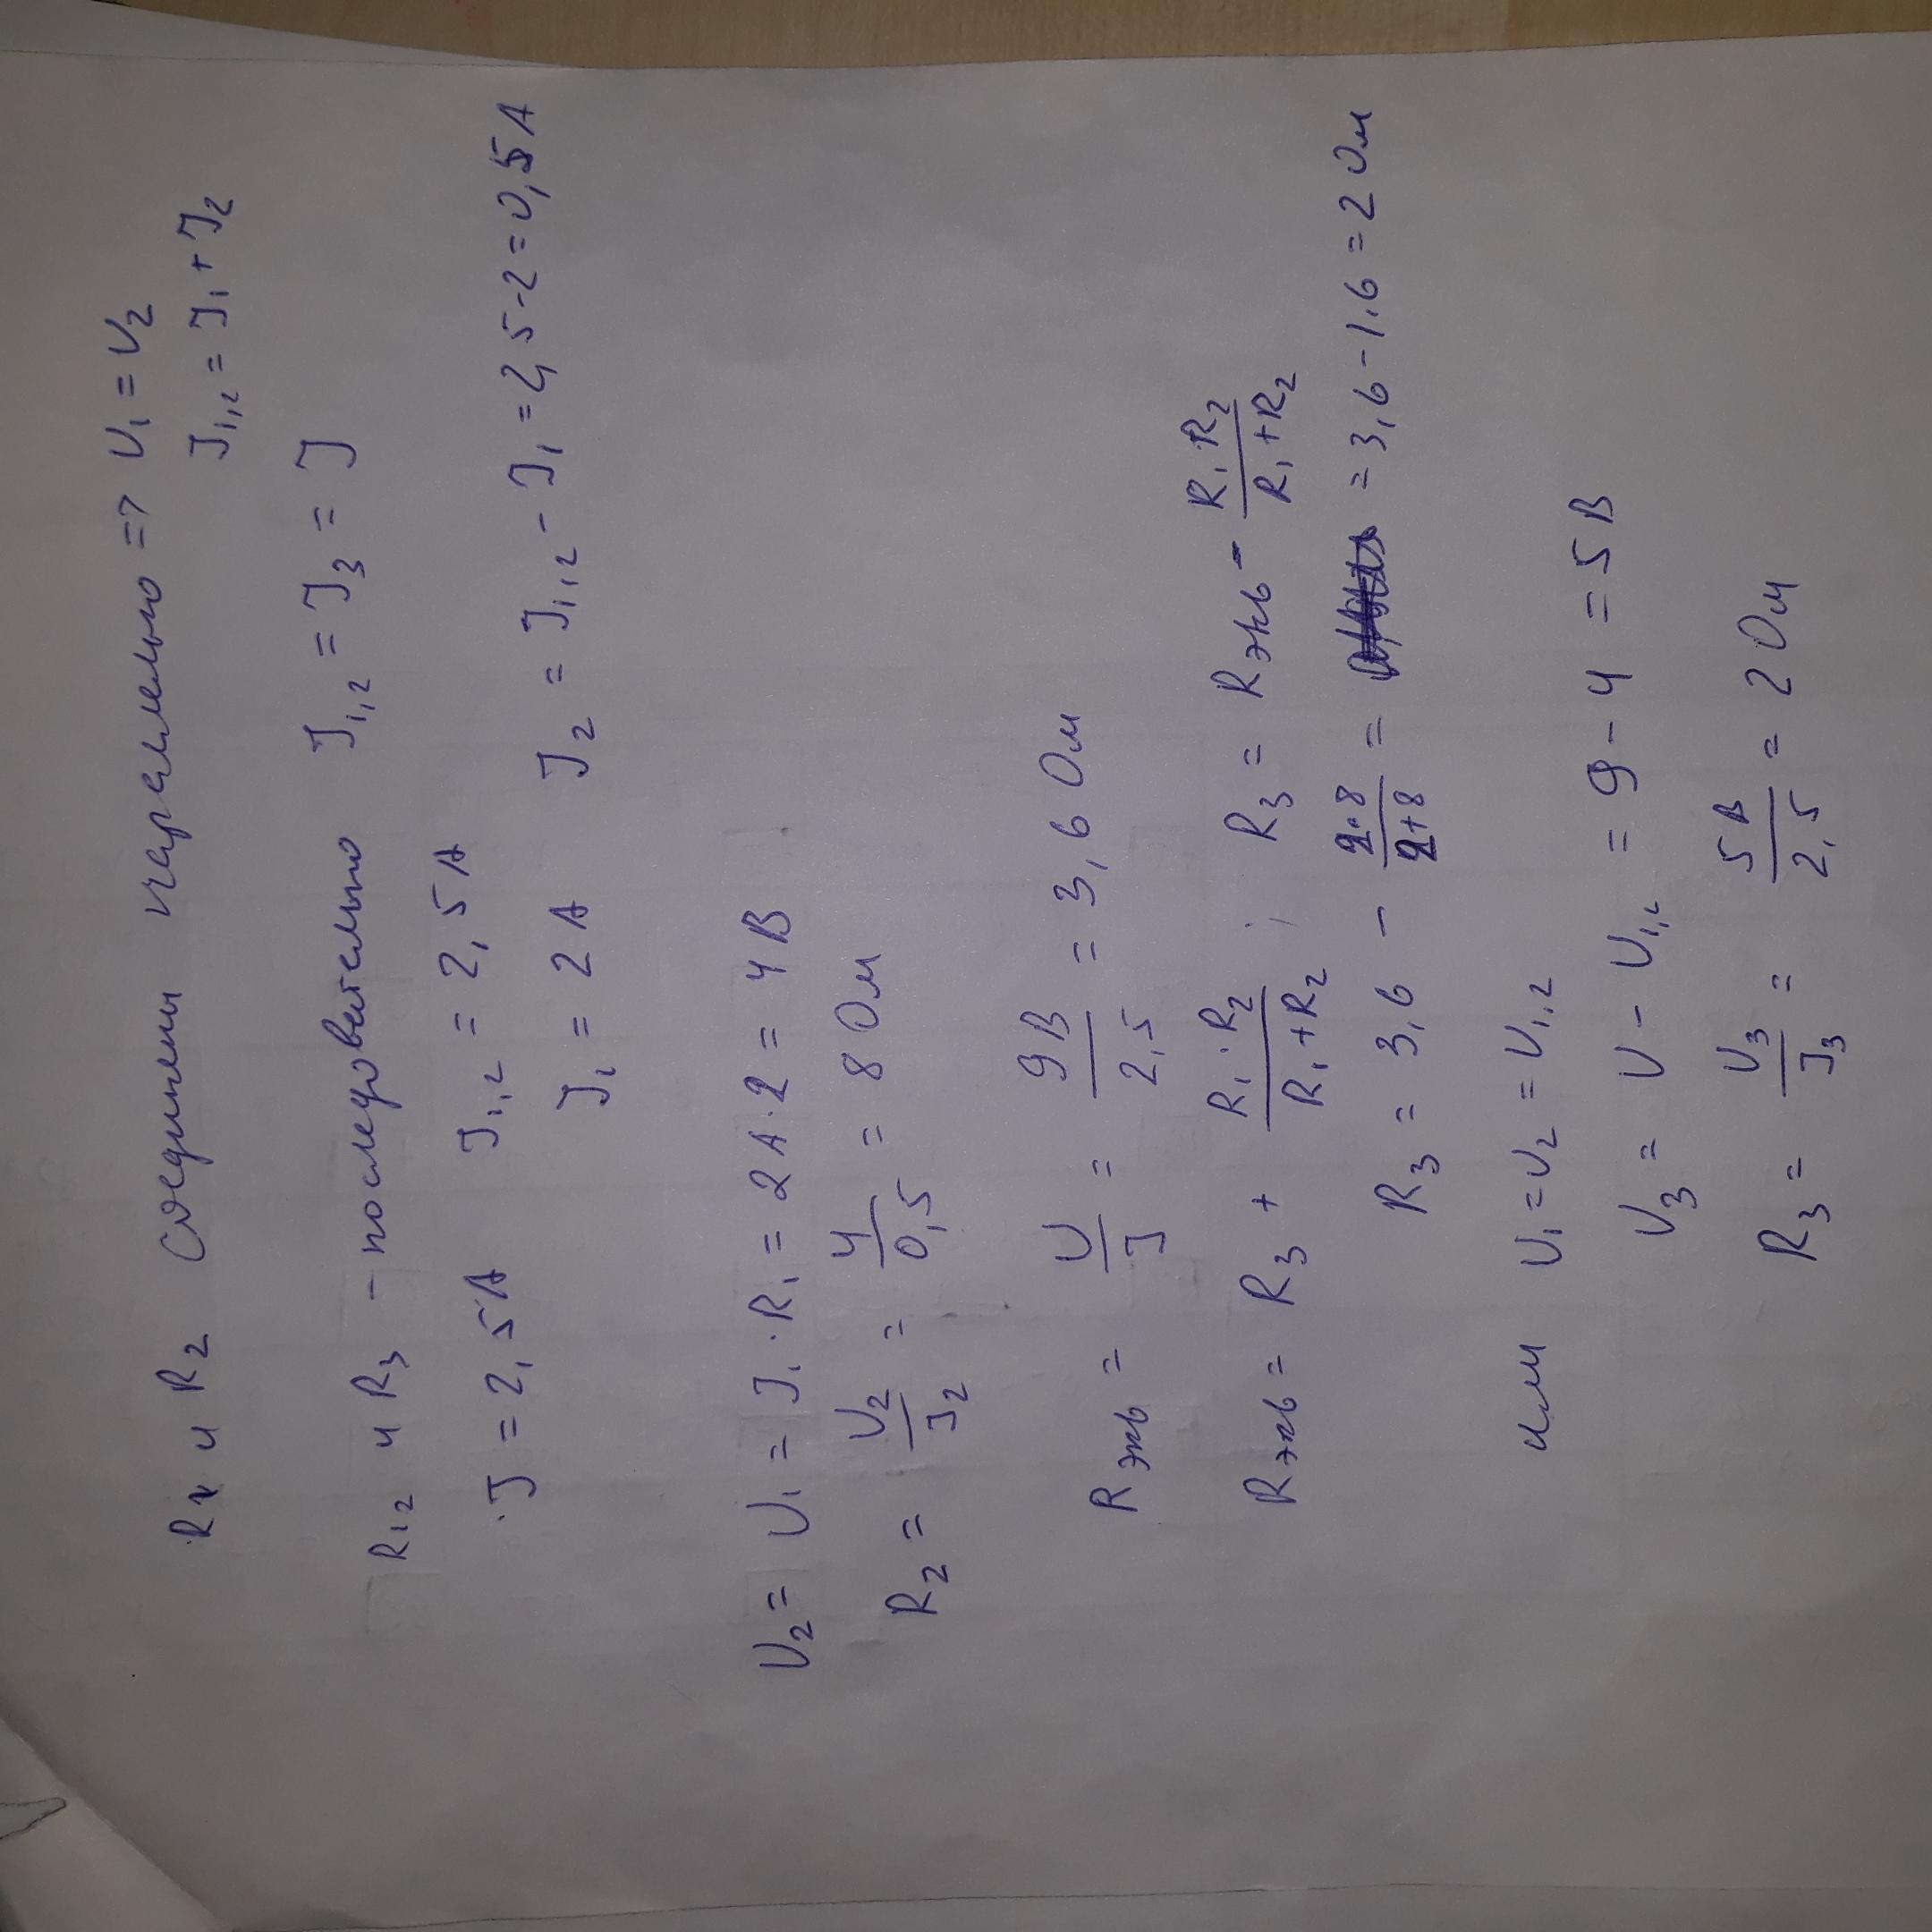 R1 и R2 соединены параллельно => U₁ = U₂
J₁,₂ = J₁ + J₂
R₁₂ и R₃ - последовательно J₁,₂ = J₃ = J
J = 2,5A J₁,₂ = 2,5A
J₁ = 2A J₂ = J₁,₂ - J₁ = 2,5-2=0,5A
U₂ = U₁ = J₁·R₁ = 2A·2 = 4В
R₂ = U₂/J₂ = 4/0,5 = 8 Ом
Rэкв = U/J = 9В/2,5 = 3,6 Ом
Rэкв = R₃ + R₁·R₂/R₁+R₂ ; R₃ = Rэкв - R₁R₂/R₁+R₂
R₃ = 3,6 - 2·8/2+8 = = 3,6-1,6=2 Ом
или U₁=U₂=U₁,₂
U₃ = U - U₁,₂ = 9-4 = 5В
R₃ = U₃/J₃ = 5В/2,5 = 2 Ом